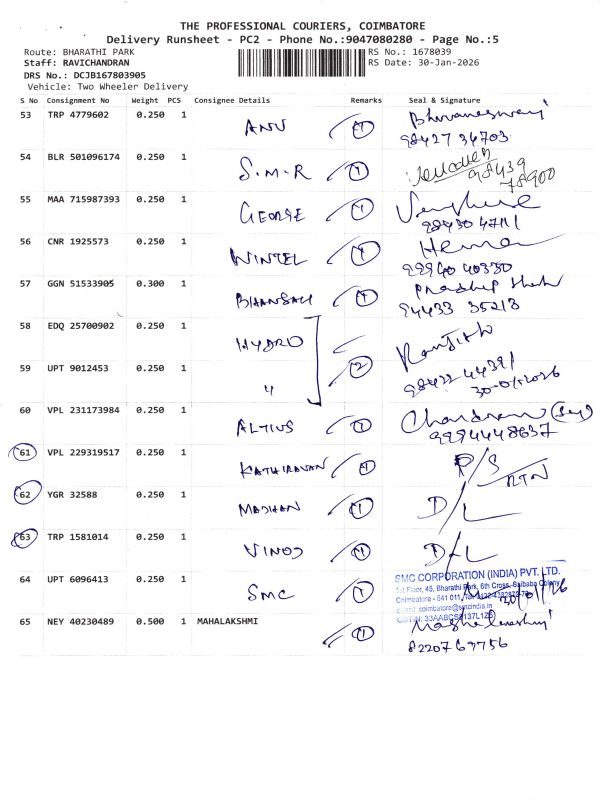 THE PROFESSIONAL COURIERS, COIMBATORE
Delivery Runsheet - PC2 - Phone No.:9047080280 - Page No.:5
Route: BHARATHI PARK RS No.: 1678039
Staff: RAVICHANDRAN RS Date: 30-Jan-2026
DRS No.: DCJB167803905
Vehicle: Two Wheeler Delivery
S No Consignment No Weight PCS Consignee Details Remarks Seal & Signature
53 TRP 4779602 0.250 1 ANU 1 Bhuvaneswari
98427 34703
54 BLR 501096174 0.250 1 S.M.R 1 98439
78900
55 MAA 715987393 0.250 1 GEORGE 1
98430 47111
56 CNR 1925573 0.250 1 WINTEL 1 Hema
99940 40330
57 GGN 51533905 0.300 1 BHANSALI 1 Pradeep Shah
94433 35213
58 EDQ 25700902 0.250 1 HYDRO 2 Ranjith
59 UPT 9012453 0.250 1 4 98422 44391
30-01-2026
60 VPL 231173984 0.250 1 ALTIUS 1 Chandran
9994448637
61 VPL 229319517 0.250 1 KATHIRAVAN 1 P/S
RTN
62 YGR 32588 0.250 1 MADHAN 1 D/L
63 TRP 1581014 0.250 1 VINOD 1 D/L
64 UPT 6096413 0.250 1 SMC 1 SMC CORPORATION (INDIA) PVT. LTD.
1st Floor, 45, Bharathi Park, 6th Cross, Saibaba Colony
Coimbatore - 641 011,
email: coimbatore@smcindia.in
65 NEY 40230489 0.500 1 MAHALAKSHMI 1
8220769756